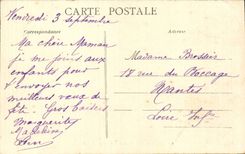 Vendredi 3 Septembre
CARTE POSTALE
Correspondance
Ma chère Maman
je me joins aux
enfants pour
t'envoyer nos
meilleurs vœux de
fête. Gros baisers
Marguerite
Madame Brossier
18 rue du Boccage
Nantes
Loire Infre